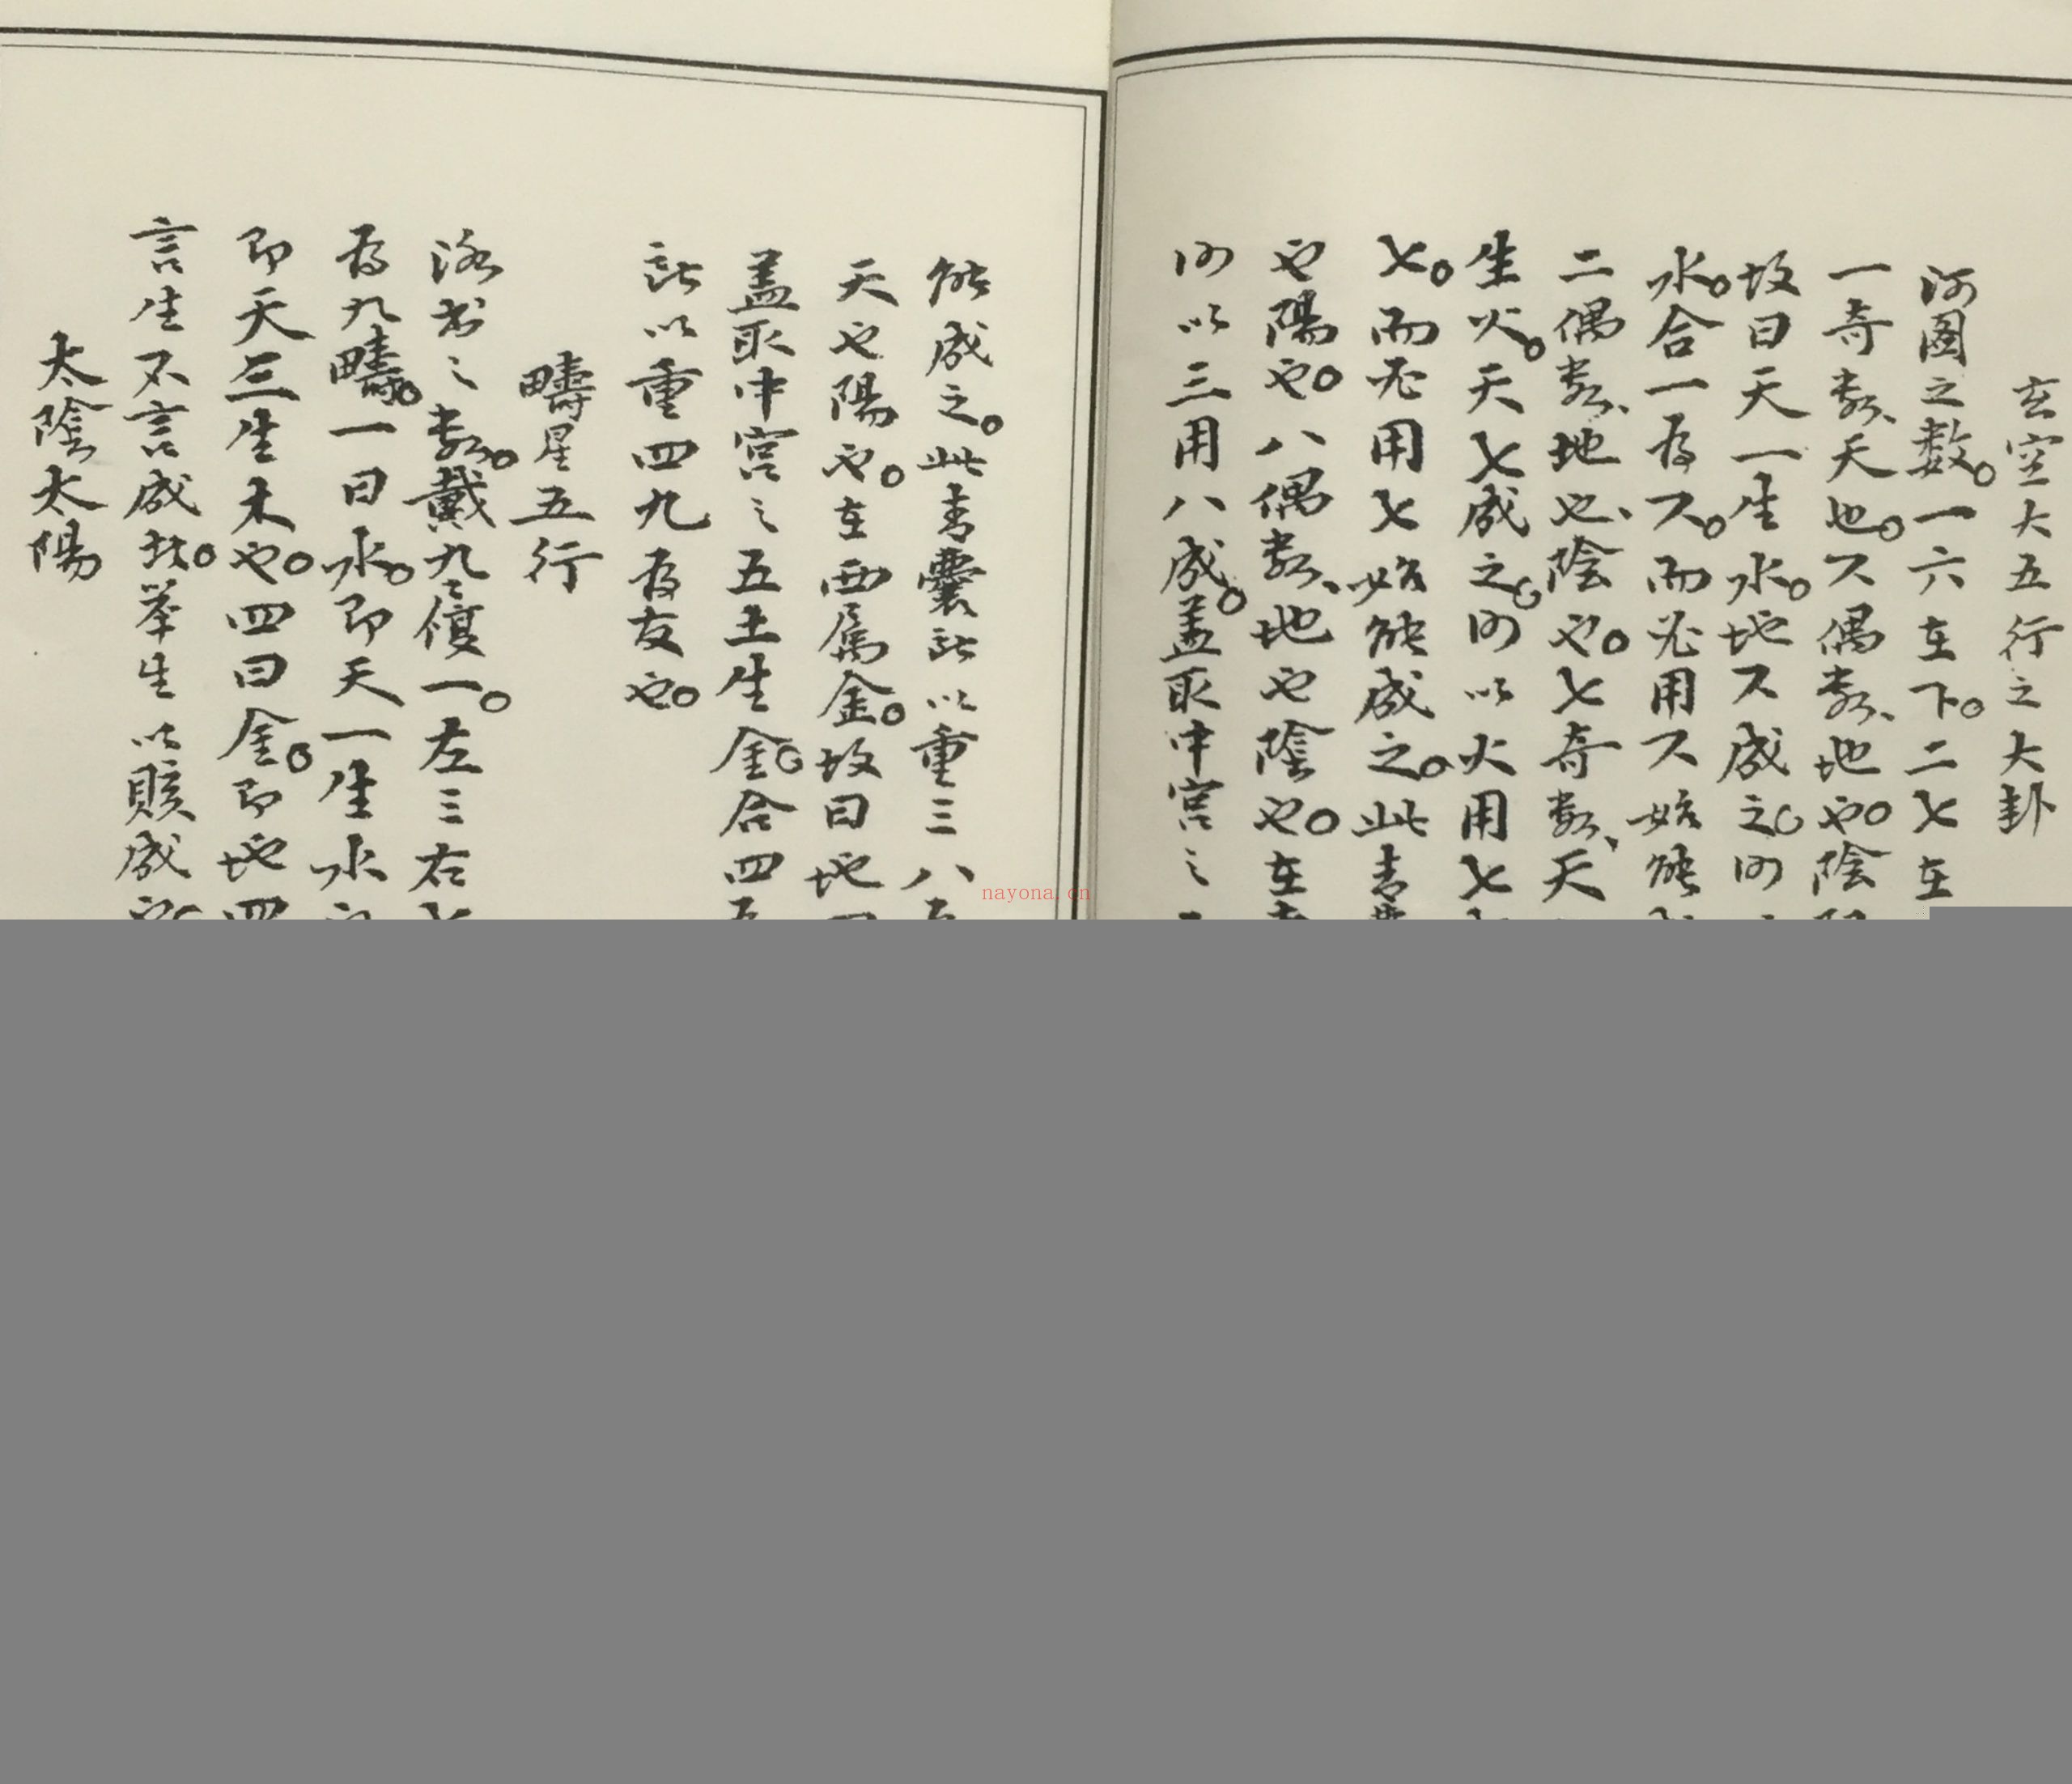 玄空大五行之大卦
河图之数。一六在下。二七在
一奇数、天也。六偶数、地也。陰
故曰天一生水。地六成之。所
水。合一為六。而必用六始能
二偶数、地也、陰也。七奇数、天
生火。天七成之。所以火用七
七。而必用七始能成之。此青
也陽也。八偶数、地也陰也。在
所以三用八成。盖取中宮之
能成之。此青囊訣以重三八
天也陽也。在西属金。故曰地四
盖取中宮之五土生金。合四
訣以重四九為友也。
疇星五行
洛书之数。戴九履一。左三右七
為九疇。一曰水。即天一生水
即天三生木也。四曰金。即地四
言生不言成於。举生以賅成也
太陰太陽
nayona.cn